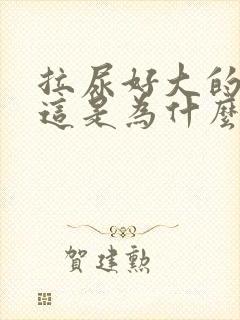 拉尿好大的
這是為什麼
賀建勳